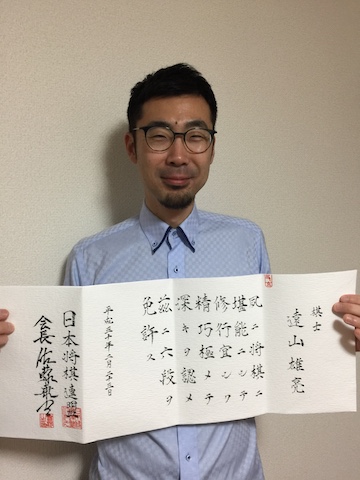 棋士
遠山雄亮
夙ニ将棋ニ
堪能ニシテ
修行宜シク
精巧極メテ
深キヲ認メ
茲ニ六段ヲ
免許ス
平成三十年二月廿三日
日本将棋連盟
会長佐藤康光